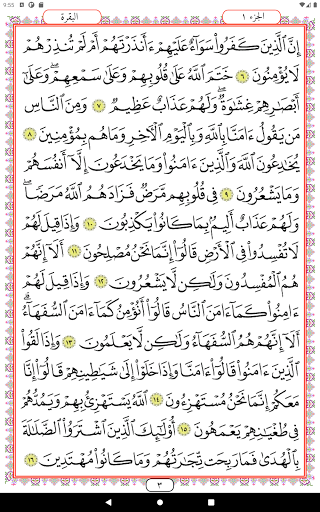 9:55
الجزء ١
البقرة
إِنَّ ٱلَّذِينَ كَفَرُوا۟ سَوَآءٌ عَلَيْهِمْ ءَأَنذَرْتَهُمْ أَمْ لَمْ تُنذِرْهُمْ
لَا يُؤْمِنُونَ ٦ خَتَمَ ٱللَّهُ عَلَىٰ قُلُوبِهِمْ وَعَلَىٰ سَمْعِهِمْ ۖ وَعَلَىٰٓ
أَبْصَٰرِهِمْ غِشَٰوَةٌ ۖ وَلَهُمْ عَذَابٌ عَظِيمٌ ٧ وَمِنَ ٱلنَّاسِ
مَن يَقُولُ ءَامَنَّا بِٱللَّهِ وَبِٱلْيَوْمِ ٱلْءَاخِرِ وَمَا هُم بِمُؤْمِنِينَ ٨
يُخَٰدِعُونَ ٱللَّهَ وَٱلَّذِينَ ءَامَنُوا۟ وَمَا يَخْدَعُونَ إِلَّآ أَنفُسَهُمْ
وَمَا يَشْعُرُونَ ٩ فِى قُلُوبِهِم مَّرَضٌ فَزَادَهُمُ ٱللَّهُ مَرَضًا ۖ
وَلَهُمْ عَذَابٌ أَلِيمٌۢ بِمَا كَانُوا۟ يَكْذِبُونَ ١٠ وَإِذَا قِيلَ لَهُمْ
لَا تُفْسِدُوا۟ فِى ٱلْأَرْضِ قَالُوٓا۟ إِنَّمَا نَحْنُ مُصْلِحُونَ ١١ أَلَآ إِنَّهُمْ
هُمُ ٱلْمُفْسِدُونَ وَلَٰكِن لَّا يَشْعُرُونَ ١٢ وَإِذَا قِيلَ لَهُمْ
ءَامِنُوا۟ كَمَآ ءَامَنَ ٱلنَّاسُ قَالُوٓا۟ أَنُؤْمِنُ كَمَآ ءَامَنَ ٱلسُّفَهَآءُ ۗ
أَلَآ إِنَّهُمْ هُمُ ٱلسُّفَهَآءُ وَلَٰكِن لَّا يَعْلَمُونَ ١٣ وَإِذَا لَقُوا۟
ٱلَّذِينَ ءَامَنُوا۟ قَالُوٓا۟ ءَامَنَّا وَإِذَا خَلَوْا۟ إِلَىٰ شَيَٰطِينِهِمْ قَالُوٓا۟ إِنَّا
مَعَكُمْ إِنَّمَا نَحْنُ مُسْتَهْزِءُونَ ١٤ ٱللَّهُ يَسْتَهْزِئُ بِهِمْ وَيَمُدُّهُمْ
فِى طُغْيَٰنِهِمْ يَعْمَهُونَ ١٥ أُو۟لَٰٓئِكَ ٱلَّذِينَ ٱشْتَرَوُا۟ ٱلضَّلَٰلَةَ
بِٱلْهُدَىٰ فَمَا رَبِحَت تِّجَٰرَتُهُمْ وَمَا كَانُوا۟ مُهْتَدِينَ ١٦
٣